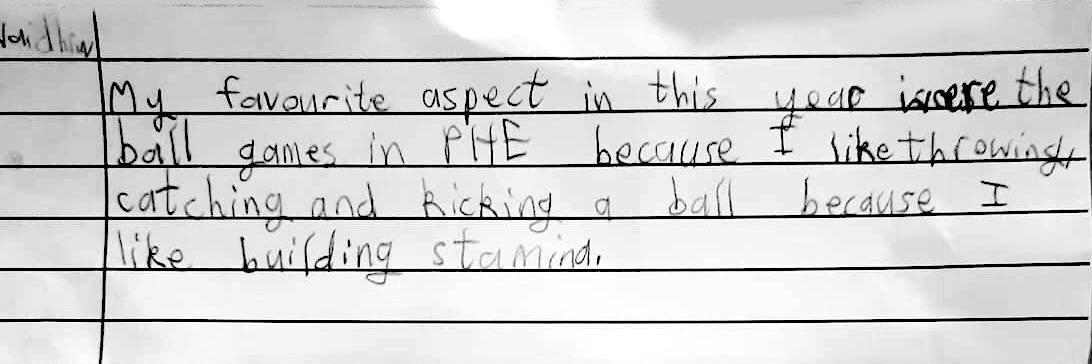 My favourite aspect in this year were the
ball games in PHE because I like throwing,
catching and kicking a ball because I
like building stamina.